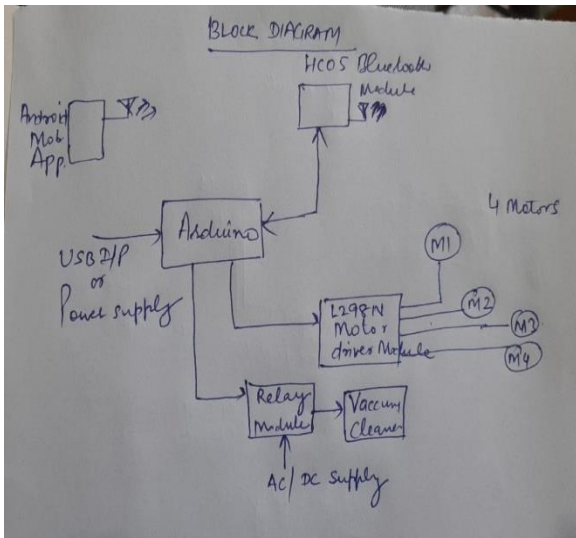 BLOCK DIAGRAM
HC05 Bluetooth
Module
Android
Mob
App.
4 Motors
Arduino
M1
USB I/P
or
Power supply
L298N
Motor
driver Module
M2
M3
M4
Relay
Module
Vaccum
Cleaner
AC/DC Supply